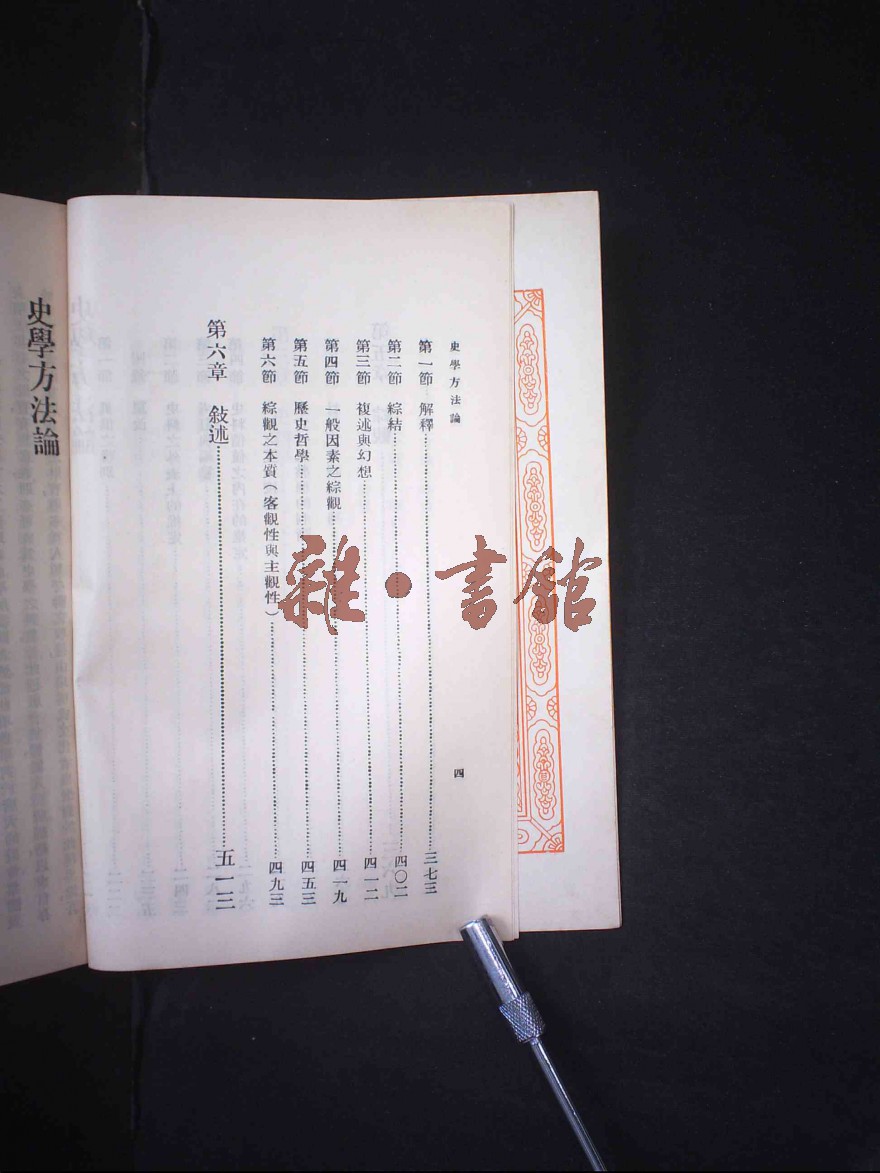 史學方法論
四
第一節 解釋……三七三
第二節 綜結……四〇二
第三節 複述與幻想……四一二
第四節 一般因素之綜觀……四一九
第五節 歷史哲學……四五三
第六節 綜觀之本質(客觀性與主觀性)……四九三
第六章 敍述……五一三
史學方法論
雜·書館